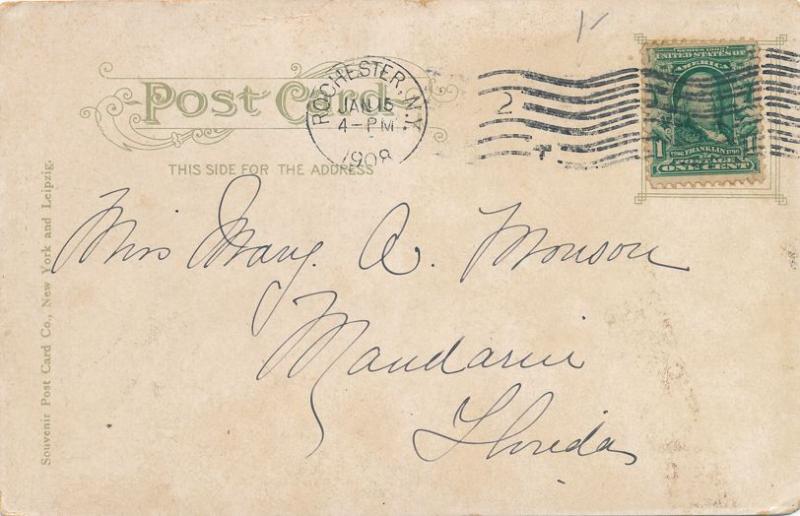 Post Card
ROCHESTER, N.Y.
JAN 15
4-PM
1908
2
SERIES 1902
UNITED STATES OF
AMERICA
1706 FRANKLIN 1790
1
POSTAGE
ONE CENT
THIS SIDE FOR THE ADDRESS
Miss Mary A. Monson
Mandarin
Florida
Souvenir Post Card Co., New York and Leipzig.